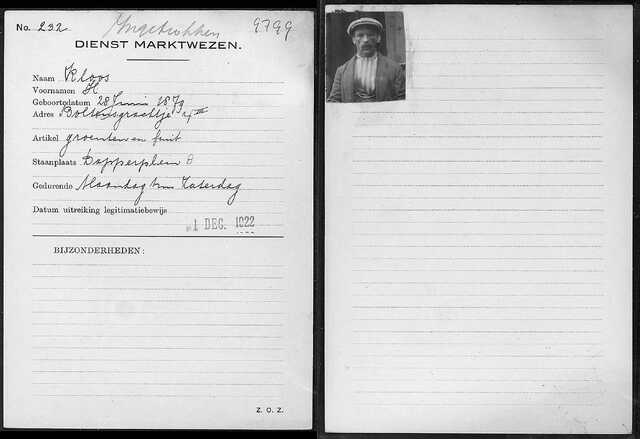 No. 232. Ingetrokken 9799
DIENST MARKTWEZEN.
Naam Kloos
Voornamen H
Geboortedatum 28 Juni 1879
Adres
Artikel groenten en fruit
Staanplaats Dapperplein 8
Gedurende Maandag t/m Zaterdag
Datum uitreiking legitimatiebewijs
1 DEG. 1922
BIJZONDERHEDEN:
Z. O. Z.